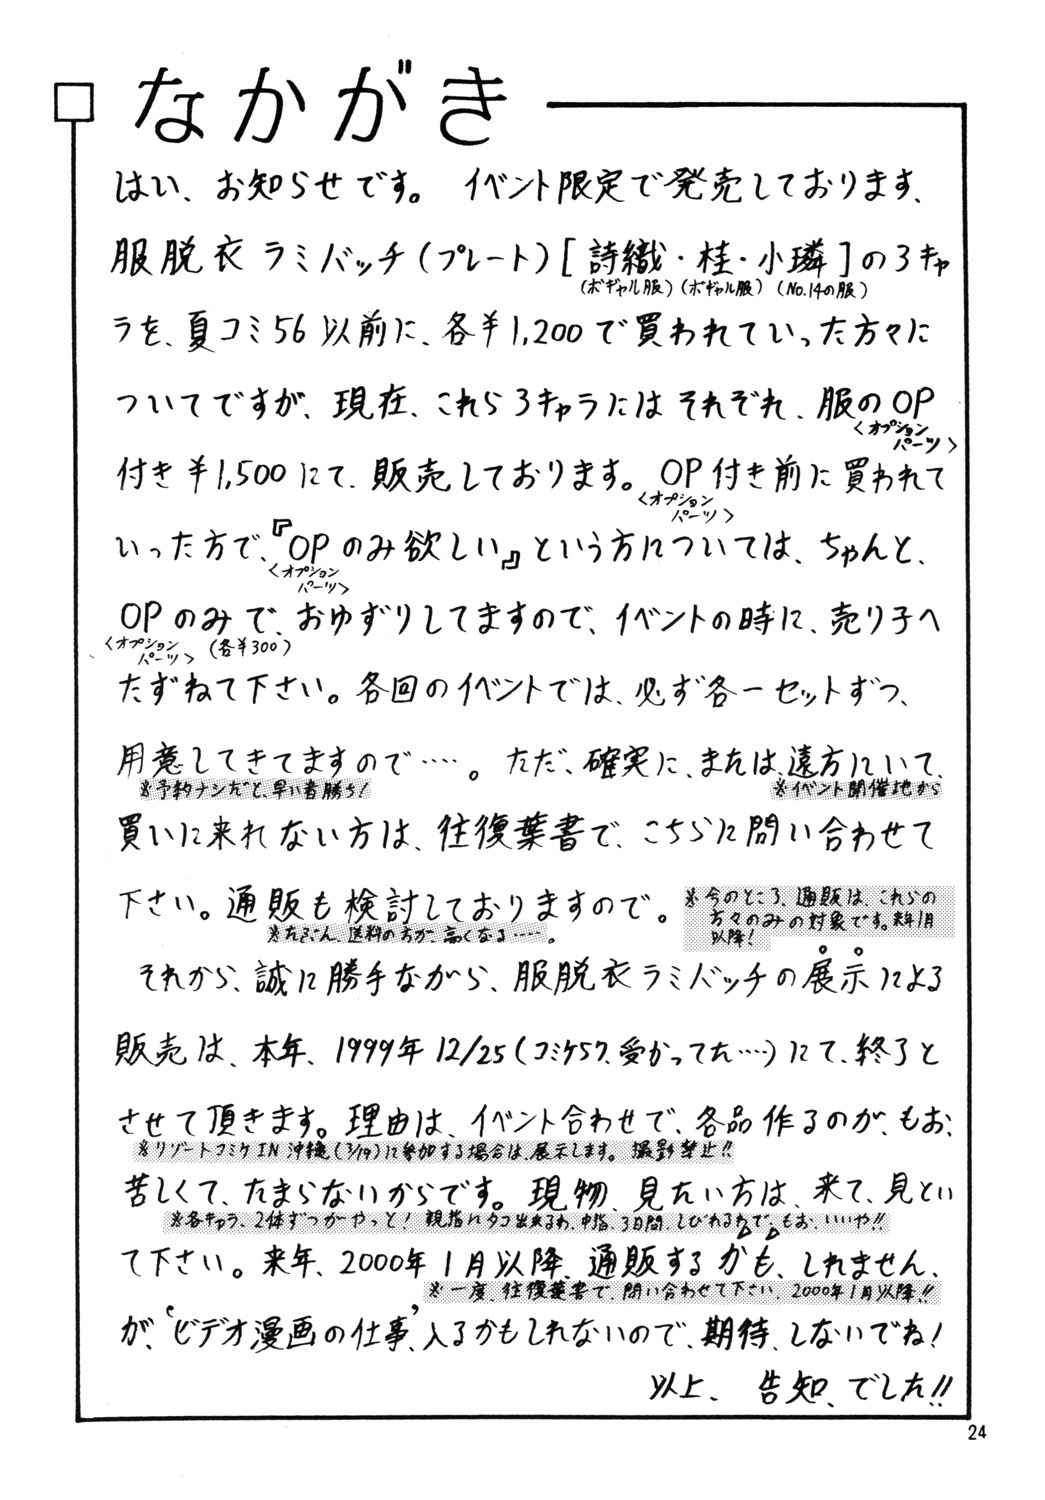 なかがき
はい、お知らせです。 イベント限定で発売しております、
服脱衣ラミバッチ(プレート)[詩織・桂・小璘]の3キャ
(ボギャル服)(ボギャル服)(No.14の服)
ラを、夏コミ56以前に、各¥1,200で買われていった方々に
ついてですが、現在、これら3キャラにはそれぞれ、服のOP
<オプションパーツ>
付き¥1,500にて、販売しております。OP付き前に買われて
<オプションパーツ>
いった方で、『OPのみ欲しい』という方については、ちゃんと、
<オプションパーツ>
OPのみで、おゆずりしてますので、イベントの時に、売り子へ
<オプションパーツ> (各¥300)
たずねて下さい。各回のイベントでは、必ず各一セットずつ、
用意してきてますので……。ただ、確実に、または、遠方にいて、
※予約ナシだと、早い者勝ち! ※イベント開催地から
買いに来れない方は、往復葉書で、こちらに問い合わせて
下さい。通販も検討しておりますので。
※今のところ、通販は、これらの
方々のみの対象です。来年1月
以降!
※たぶん、送料の方が、高くなる……。
それから、誠に勝手ながら、服脱衣ラミバッチの展示による
販売は、本年、1999年12/25(コミケ57、受かってた…‥)にて、終了と
させて頂きます。理由は、イベント合わせで、各品作るのが、もお、
※リゾートコミケIN沖縄(3/19)に参加する場合は、展示します。撮影禁止!!
苦しくて、たまらないからです。現物、見たい方は、来て、見とい
※各キャラ、2体ずつがやっと! 親指にタコ出来るわ、中指、3日間、しびれるわで、もお、いいや!!
て下さい。来年、2000年1月以降、通販するかも、しれません、
※一度、往復葉書で、問い合わせて下さい、2000年1月以降!!
が、‘ビデオ漫画の仕事’、入るかもしれないので、期待、しないでね!
以上、 告知、でした!!
24